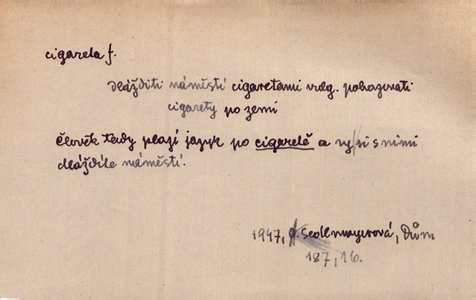 cigareta f.
dlážditi náměstí cigaretami vulg. pohazovati
cigarety po zemi
Člověk tady plazí jazyk po cigaretě a vy si s nimi
dláždíte náměstí.
1947, Sedlmayerová, Dům
187, 16.